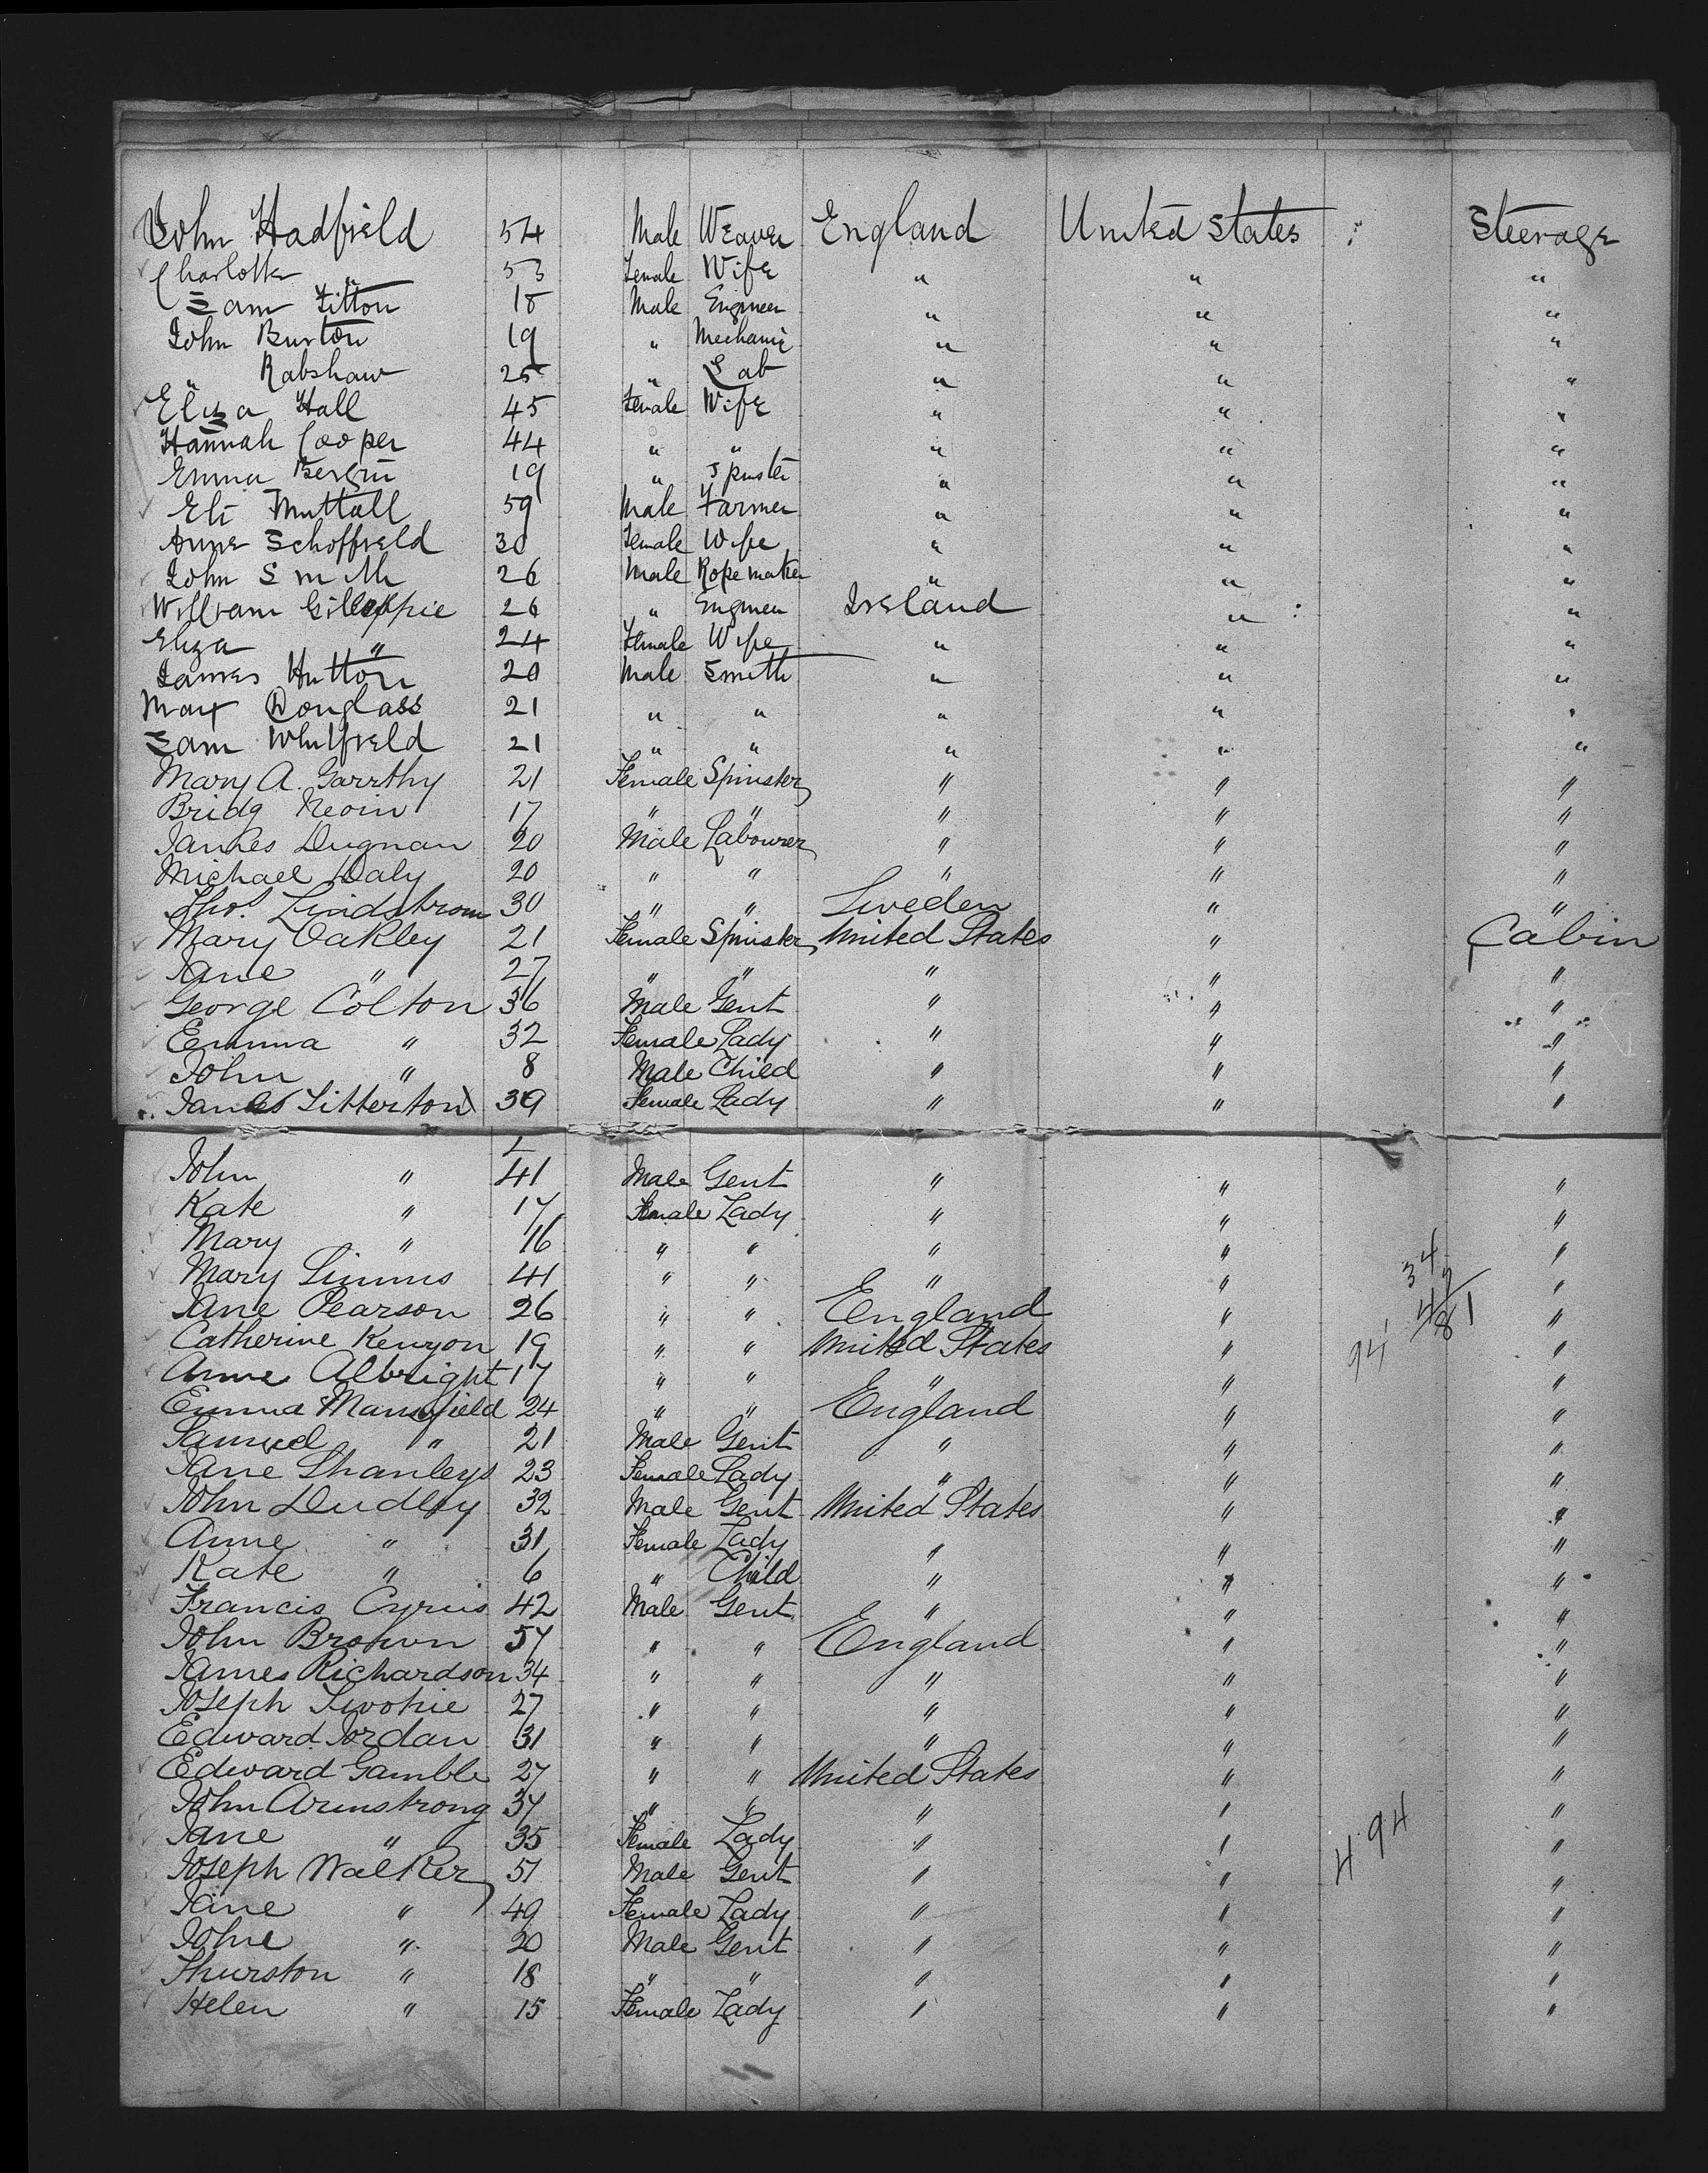 John Hadfield 54 Male Weaver England United States Steerage
Charlotte " 53 Female Wife " " "
Sam Titton 18 Male Engineer " " "
John Burton 19 " Mechanic " " "
" Rabshaw 25 " Lab " " "
Eliza Hall 45 Female Wife " " "
Hannah Cooper 44 " " " " "
Emma 19 " Spinster " " "
Eli Nuttall 59 Male Farmer " " "
Anne Schoffield 30 Female Wife " " "
John Smith 26 Male Rope maker " " "
William Gillespie 26 " Engineer Ireland " "
Eliza " 24 Female Wife " " "
James Hutton 20 Male Smith " " "
Max Douglass 21 " " " " "
Sam Whitfield 21 " " " " "
Mary A. Garrthy 21 Female Spinster " " "
Bridg 17 " " " " "
James Dugnan 20 Male Labourer " " "
Michael Daly 20 " " " " "
Thos. Lindstrom 30 " " Sweden " "
Mary Oakley 21 Female Spinster United States " Cabin
Jane " 27 " " " " "
George Colton 36 Male Gent " " "
Emma " 32 Female Lady " " "
John " 8 Male Child " " "
Titterton 39 Female Lady " " "
John " 41 Male Gent " " "
Kate " 17 Female Lady " " "
Mary " 16 " " " " "
Mary Simms 41 " " " " "
34
47
81
Jane Pearson 26 " " England " "
Catherine Kenyon 19 " " United States " 94 "
Anne Albright 17 " " " " "
Emma Mansfield 24 " " England " "
Samuel " 21 Male Gent " " "
Jane Shanleys 23 Female Lady " " "
John Dudley 32 Male Gent United States " "
Anne " 31 Female Lady " " "
Kate " 6 " Child " " "
Francis Cyrus 42 Male Gent " " "
John Brown 57 " " England " "
James Richardson 34 " " " " "
Joseph 27 " " " " "
Edward Jordan 31 " " " " "
Edward Gamble 27 " " United States " "
John Armstrong 37 " " " " "
Jane " 35 Female Lady " " 494 "
Joseph Walker 51 Male Gent " " "
Jane " 49 Female Lady " " "
John " 20 Male Gent " " "
Thurston " 18 " " " " "
Helen " 15 Female Lady " " "